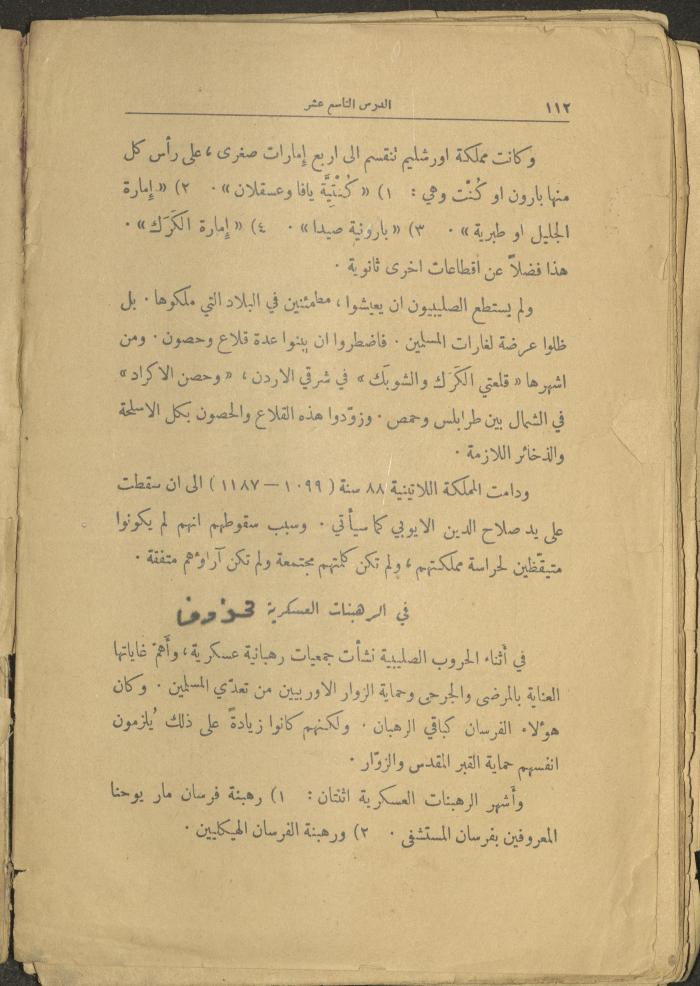 ١١٢
الدرس التاسع عشر
وكانت مملكة اورشليم تنقسم الى اربع إمارات صغرى ، على رأس كل
منها بارون او كُنْت وهي : ١) « كُنْتِيَّة يافا وعسقلان » . ٢) « إمارة
الجليل او طبرية » . ٣) « بارونية صيدا » . ٤) « إمارة الكَرَك » .
هذا فضلاً عن أقطاعات اخرى ثانوية .
ولم يستطع الصليبيون ان يعيشوا ، مطمئنين في البلاد التي ملكوها . بل
ظلوا عرضة لغارات المسلمين . فاضطروا ان يبنوا عدة قلاع وحصون . ومن
اشهرها « قلعتي الكَرَك والشوبَك » في شرقي الاردن ، « وحصن الاكراد »
في الشمال بين طرابلس وحمص . وزوّدوا هذه القلاع والحصون بكل الاسلحة
والذخائر اللازمة .
ودامت المملكة اللاتينية ٨٨ سنة ( ١٠٩٩ — ١١٨٧ ) الى ان سقطت
على يد صلاح الدين الايوبي كما سيأتي . وسبب سقوطهم انهم لم يكونوا
متيقّظين لحراسة مملكتهم ، ولم تكن كلمتهم مجتمعة ولم تكن آراؤهم متفقة .
في الرهبنات العسكرية محذوف
في أثناء الحروب الصليبية نشأت جمعيات رهبانية عسكرية ، وأَهمّ غاياتها
العناية بالمرضى والجرحى وحماية الزوار الاوربيين من تعدّي المسلمين . وكان
هوُلاء الفرسان كباقي الرهبان . ولكنهم كانوا زيادةً على ذلك يُلزمون
انفسهم حماية القبر المقدس والزوّار .
وأَشهر الرهبنات العسكرية اثنتان : ١) رهبنة فرسان مار يوحنا
المعروفين بفرسان المستشفى . ٢) ورهبنة الفرسان الهيكليين .